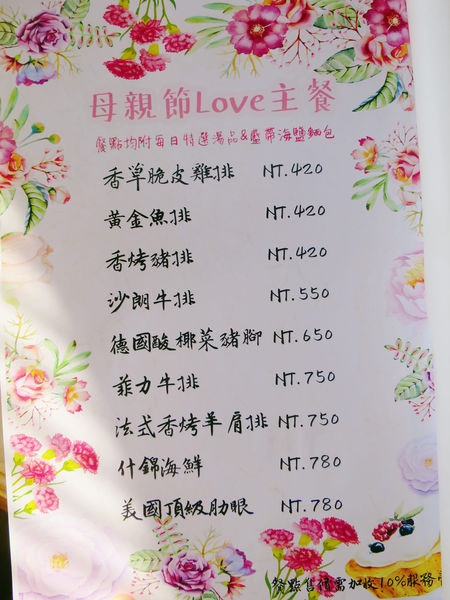 母親節Love主餐
餐點均附每日特選湯品&藍帶海鹽麵包
香草脆皮雞排 NT.420
黃金魚排 NT.420
香烤豬排 NT.420
沙朗牛排 NT.550
德國酸椰菜豬腳 NT.650
菲力牛排 NT.750
法式香烤羊肩排 NT.750
什錦海鮮 NT.780
美國頂級肋眼 NT.780
餐點售價需加收10%服務